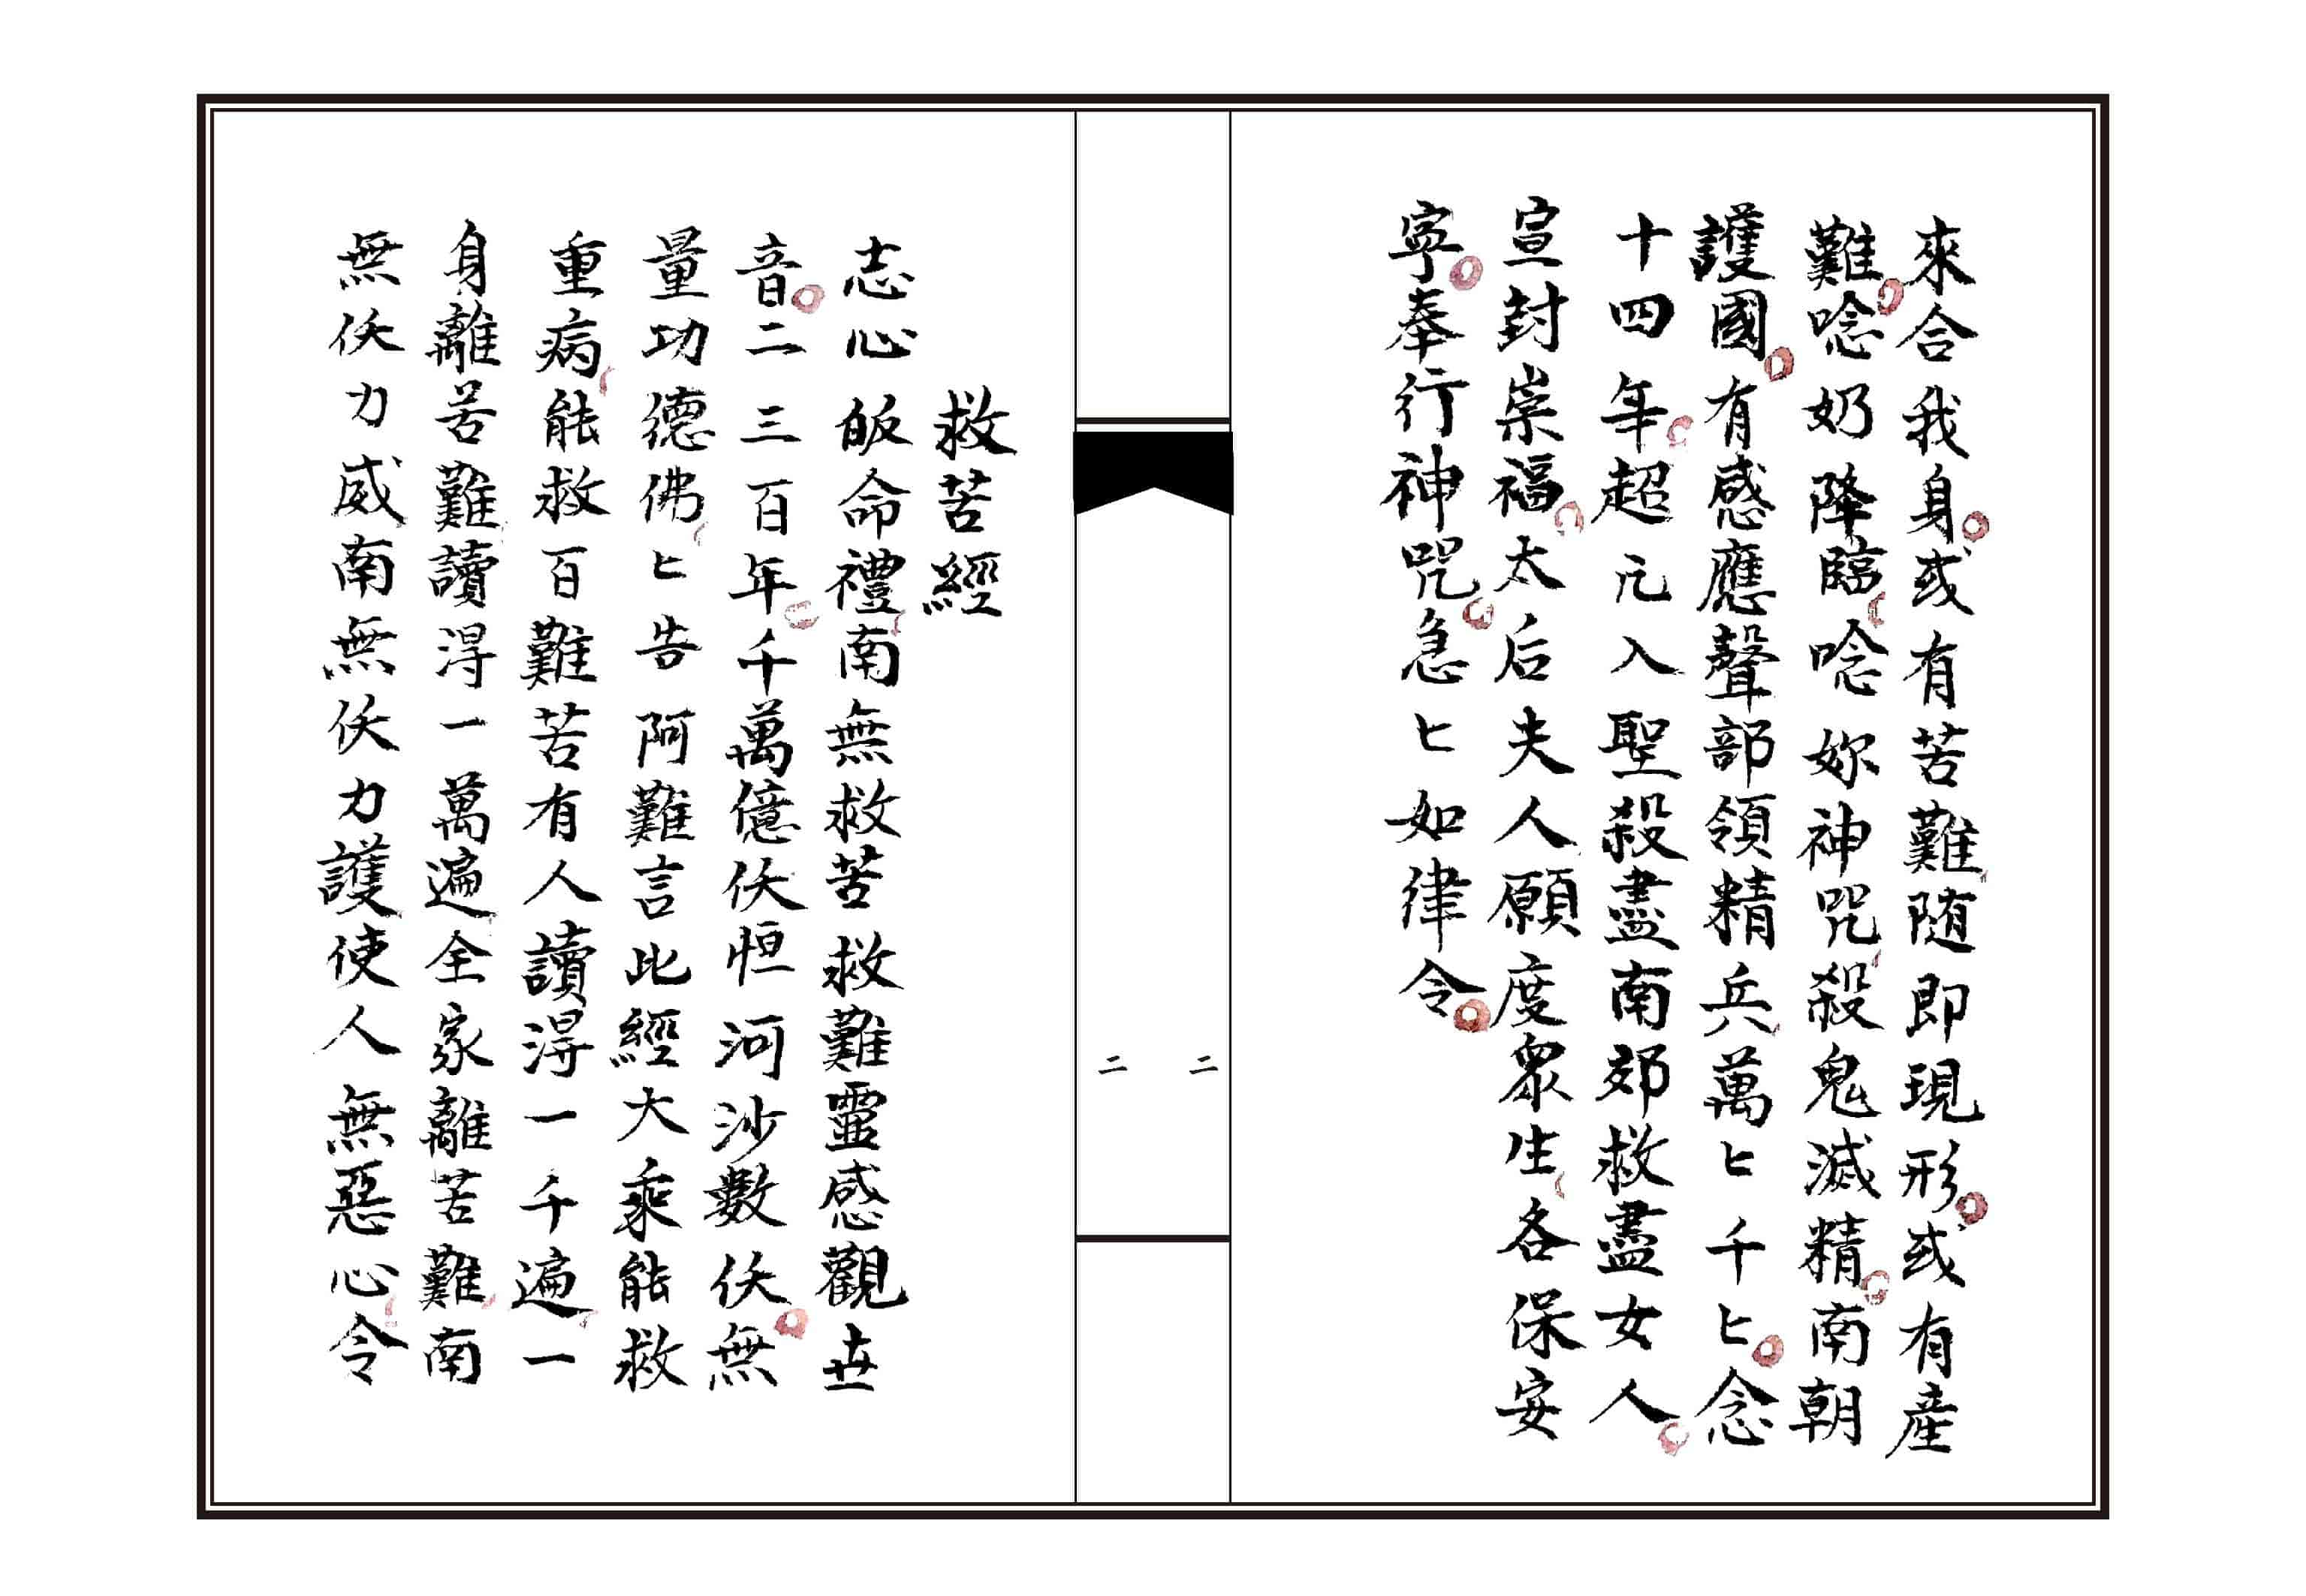 來合我身或有苦難随即現形或有產
難唸奶降臨唸妳神咒殺鬼滅精南朝
護國有感應聲部領精兵萬匕千匕念
十四年超元入聖殺盡南郊救盡女人
宣封崇福太后夫人願度眾生各保安
寧奉行神咒急匕如律令
二
二
救苦經
志心皈命禮南無救苦救難靈感觀世
音二三百年千萬億佛恒河沙數佛無
量功德佛匕告阿難言此經大乘能救
重病能救百難苦有人讀淂一千遍一
身離苦難讀淂一萬遍全家離苦難南
無佛力威南無佛力護使人無惡心令